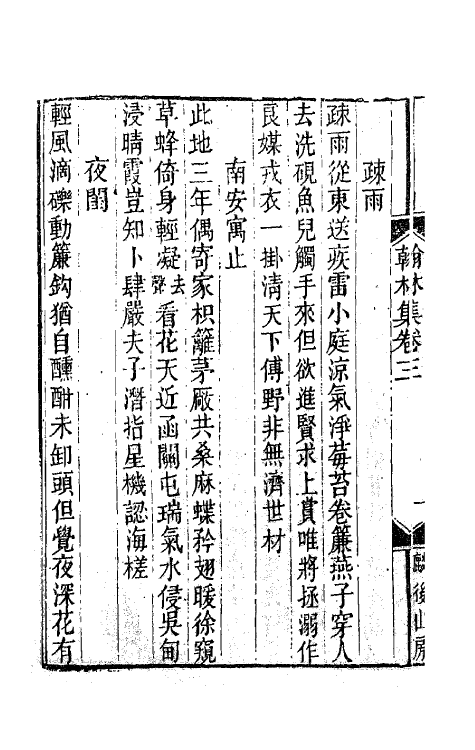 翰林集卷三
一
麟後山房
疎雨
疎雨從東送疾雷小庭涼氣淨莓苔卷簾燕子穿人
去洗硯魚兒觸手來但欲進賢求上賞唯將拯溺作
良媒戎衣一掛清天下傅野非無濟世材
南安寓止
此地三年偶寄家枳籬茅厰共桑麻蝶矜翅暖徐窺
草蜂倚身輕凝去聲看花天近函關屯瑞氣水侵吳甸
浸晴霞豈知卜肆嚴夫子潛指星機認海槎
夜閨
輕風滴礫動簾鈎猶自醺酣未卸頭但覺夜深花有